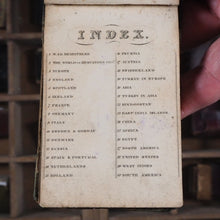 INDEX.
2 THE WORLD
3 EUROPE
4 ENGLAND
5 SCOTLAND
6 IRELAND
7 FRANCE
8 GERMANY
9 ITALY
10 SWEDEN & NORWAY
11 DENMARK
12 RUSSIA
13 SPAIN & PORTUGAL
14 NETHERLANDS
15 HOLLAND
16 PRUSSIA
17 AUSTRIA
18 SWITZERLAND
19 TURKEY IN EUROPE
20 ASIA
21 TURKEY IN ASIA
22 HINDOOSTAN
23 EAST INDIA ISLANDS
24 CHINA
25 AFRICA
26 EGYPT
27 NORTH AMERICA
28 UNITED STATES
29 WEST INDIES
30 SOUTH AMERICA